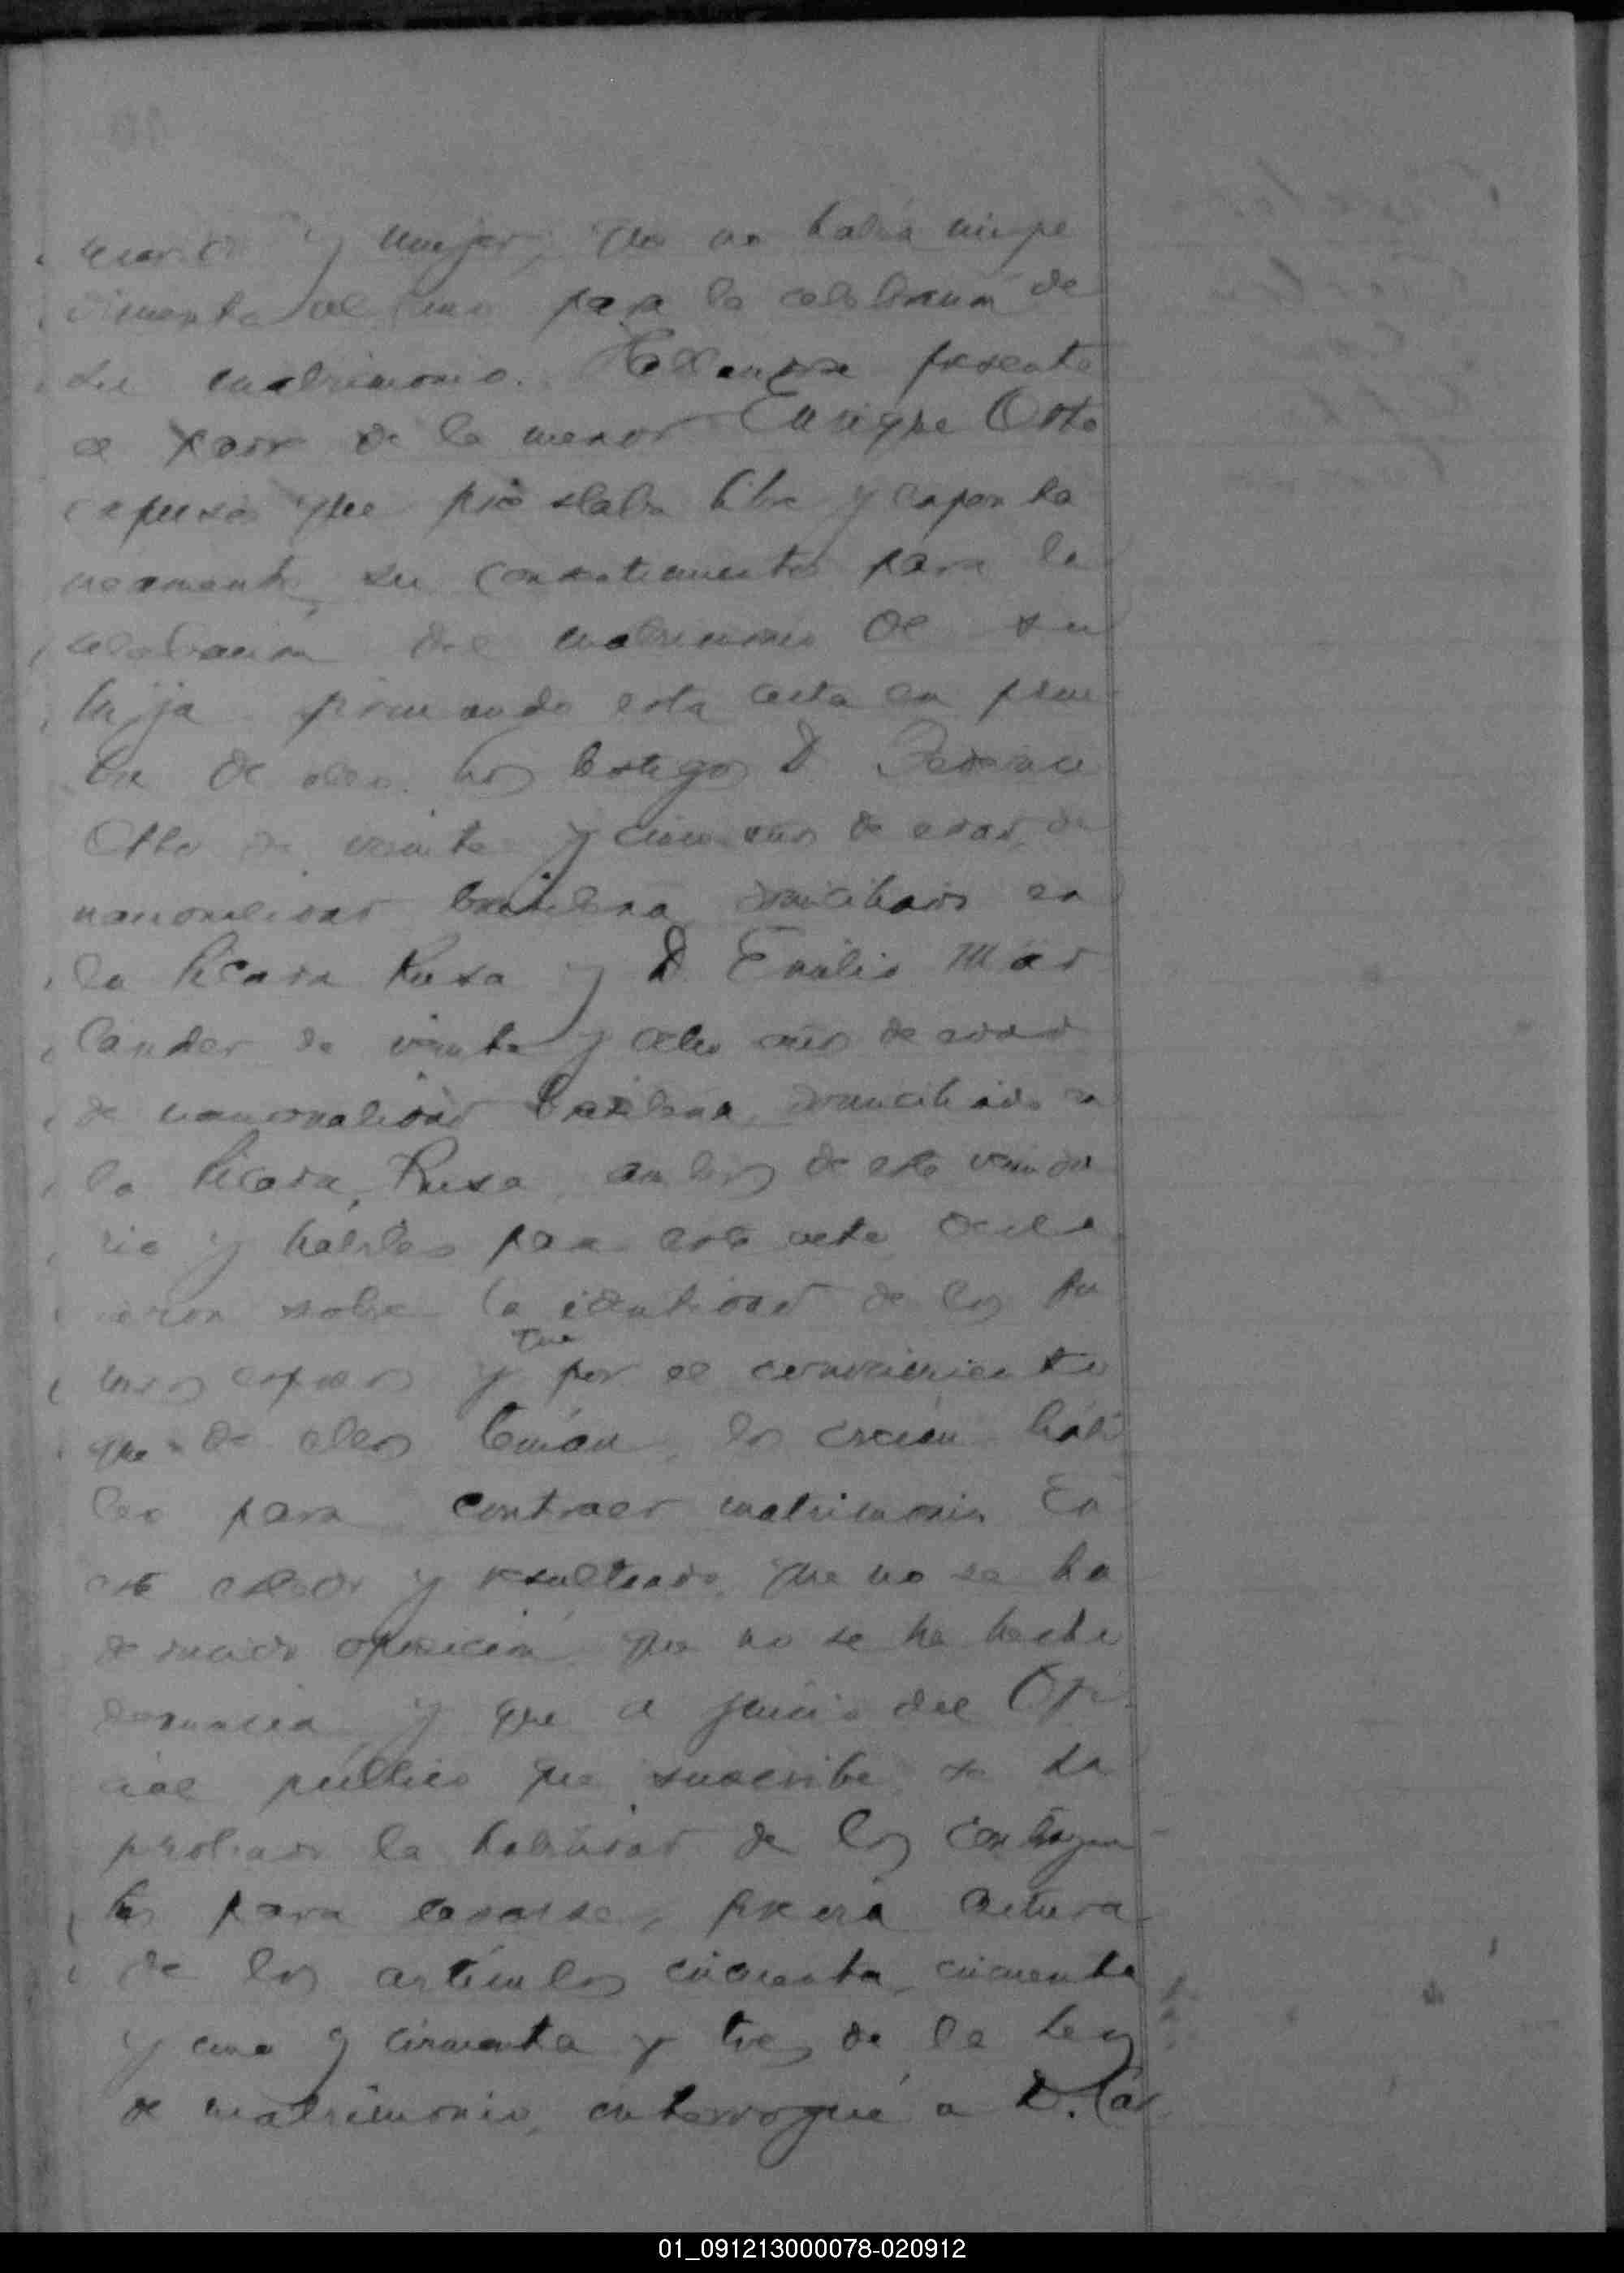 marido y mujer, que no había impe
dimento alguno para la celebración de
su matrimonio. Hallándose presente
el padre de la menor Enrique Otto
expuso que prestaba libre y espontá
neamente su consentimiento para la
celebración del matrimonio de su
hija firmando esta acta en prue
ba de ello. Los testigos D. Federico
Otto de veinte y cinco años de edad, de
nacionalidad brasilera domiciliado en
la Picada Rusa y D. Emilio Mar
lander de veinte y ocho años de edad
de nacionalidad brasilera, domiciliado en
la Picada Rusa, ambos de este vecinda
rio y hábiles para este acto decla
raron sobre la identidad de los fu
turos esposos y que por el conocimiento
que de ellos tenían, los creían hábi
les para contraer matrimonio. En
este estado y resultando que no se ha
deducido oposición que no se ha hecho
denuncia y que a juicio del Ofi
cial público que suscribe se ha
probado la habilidad de los contrayen
tes para casarse, previa lectura
de los artículos cincuenta, cincuenta
y uno y cincuenta y tres de la Ley
de matrimonio, interrogué a D. Car
01_091213000078-020912